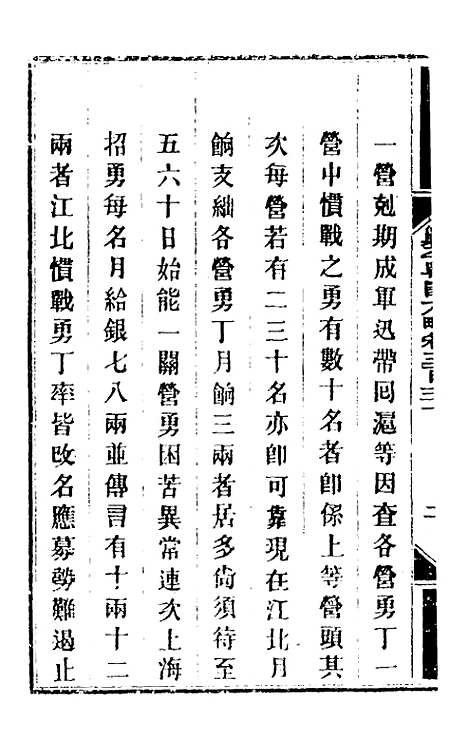 一營剋期成軍迅帶囘滬等因查各營勇丁一
營中慣戰之勇有數十名者卽係上等營頭其
次每營若有二三十名亦卽可靠現在江北月
餉支絀各營勇丁月餉三兩者居多尙須待至
五六十日始能一關營勇困苦異常連次上海
招勇每名月給銀七八兩並傳言有十兩十二
兩者江北慣戰勇丁率皆改名應募勢難遏止
二